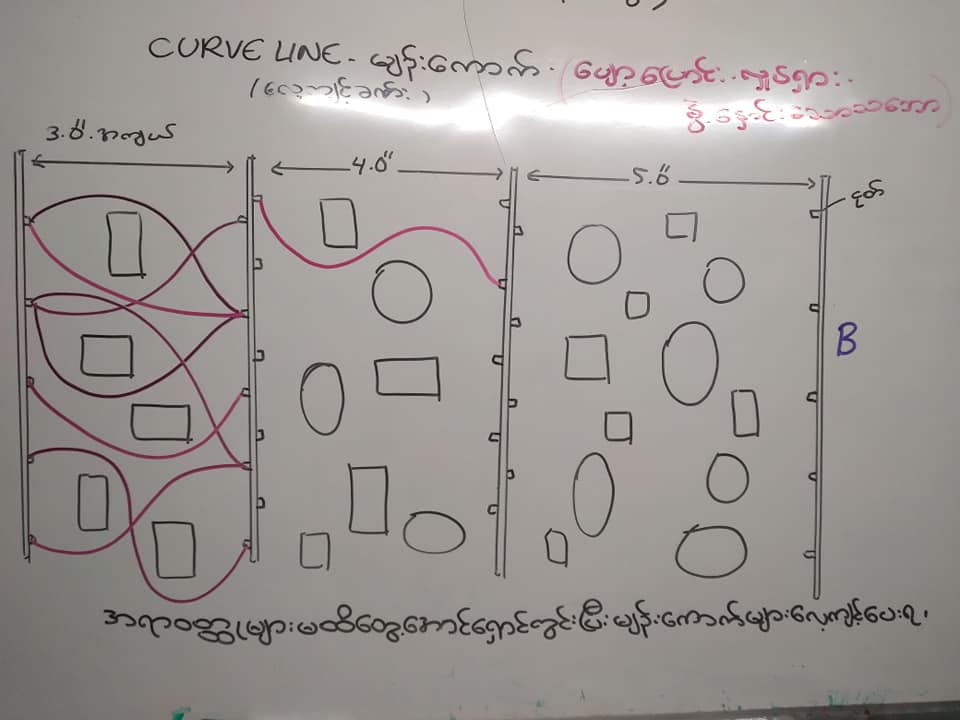 CURVE LINE - မျဉ်းကောက်. (ပျော့ပြောင်း. လှုပ်ရှား.
(လေ့ကျင့်ခဏ်း) နွဲ့နှောင်းသောသဘော)
3.0" အကျယ်
4.0"
5.0"
ငုတ်
B
အရာဝတ္ထုများမထိတွေ့အောင်ရှောင်ကွင်းပြီးမျဉ်းကောက်များလေ့ကျင့်ပေးရ၊